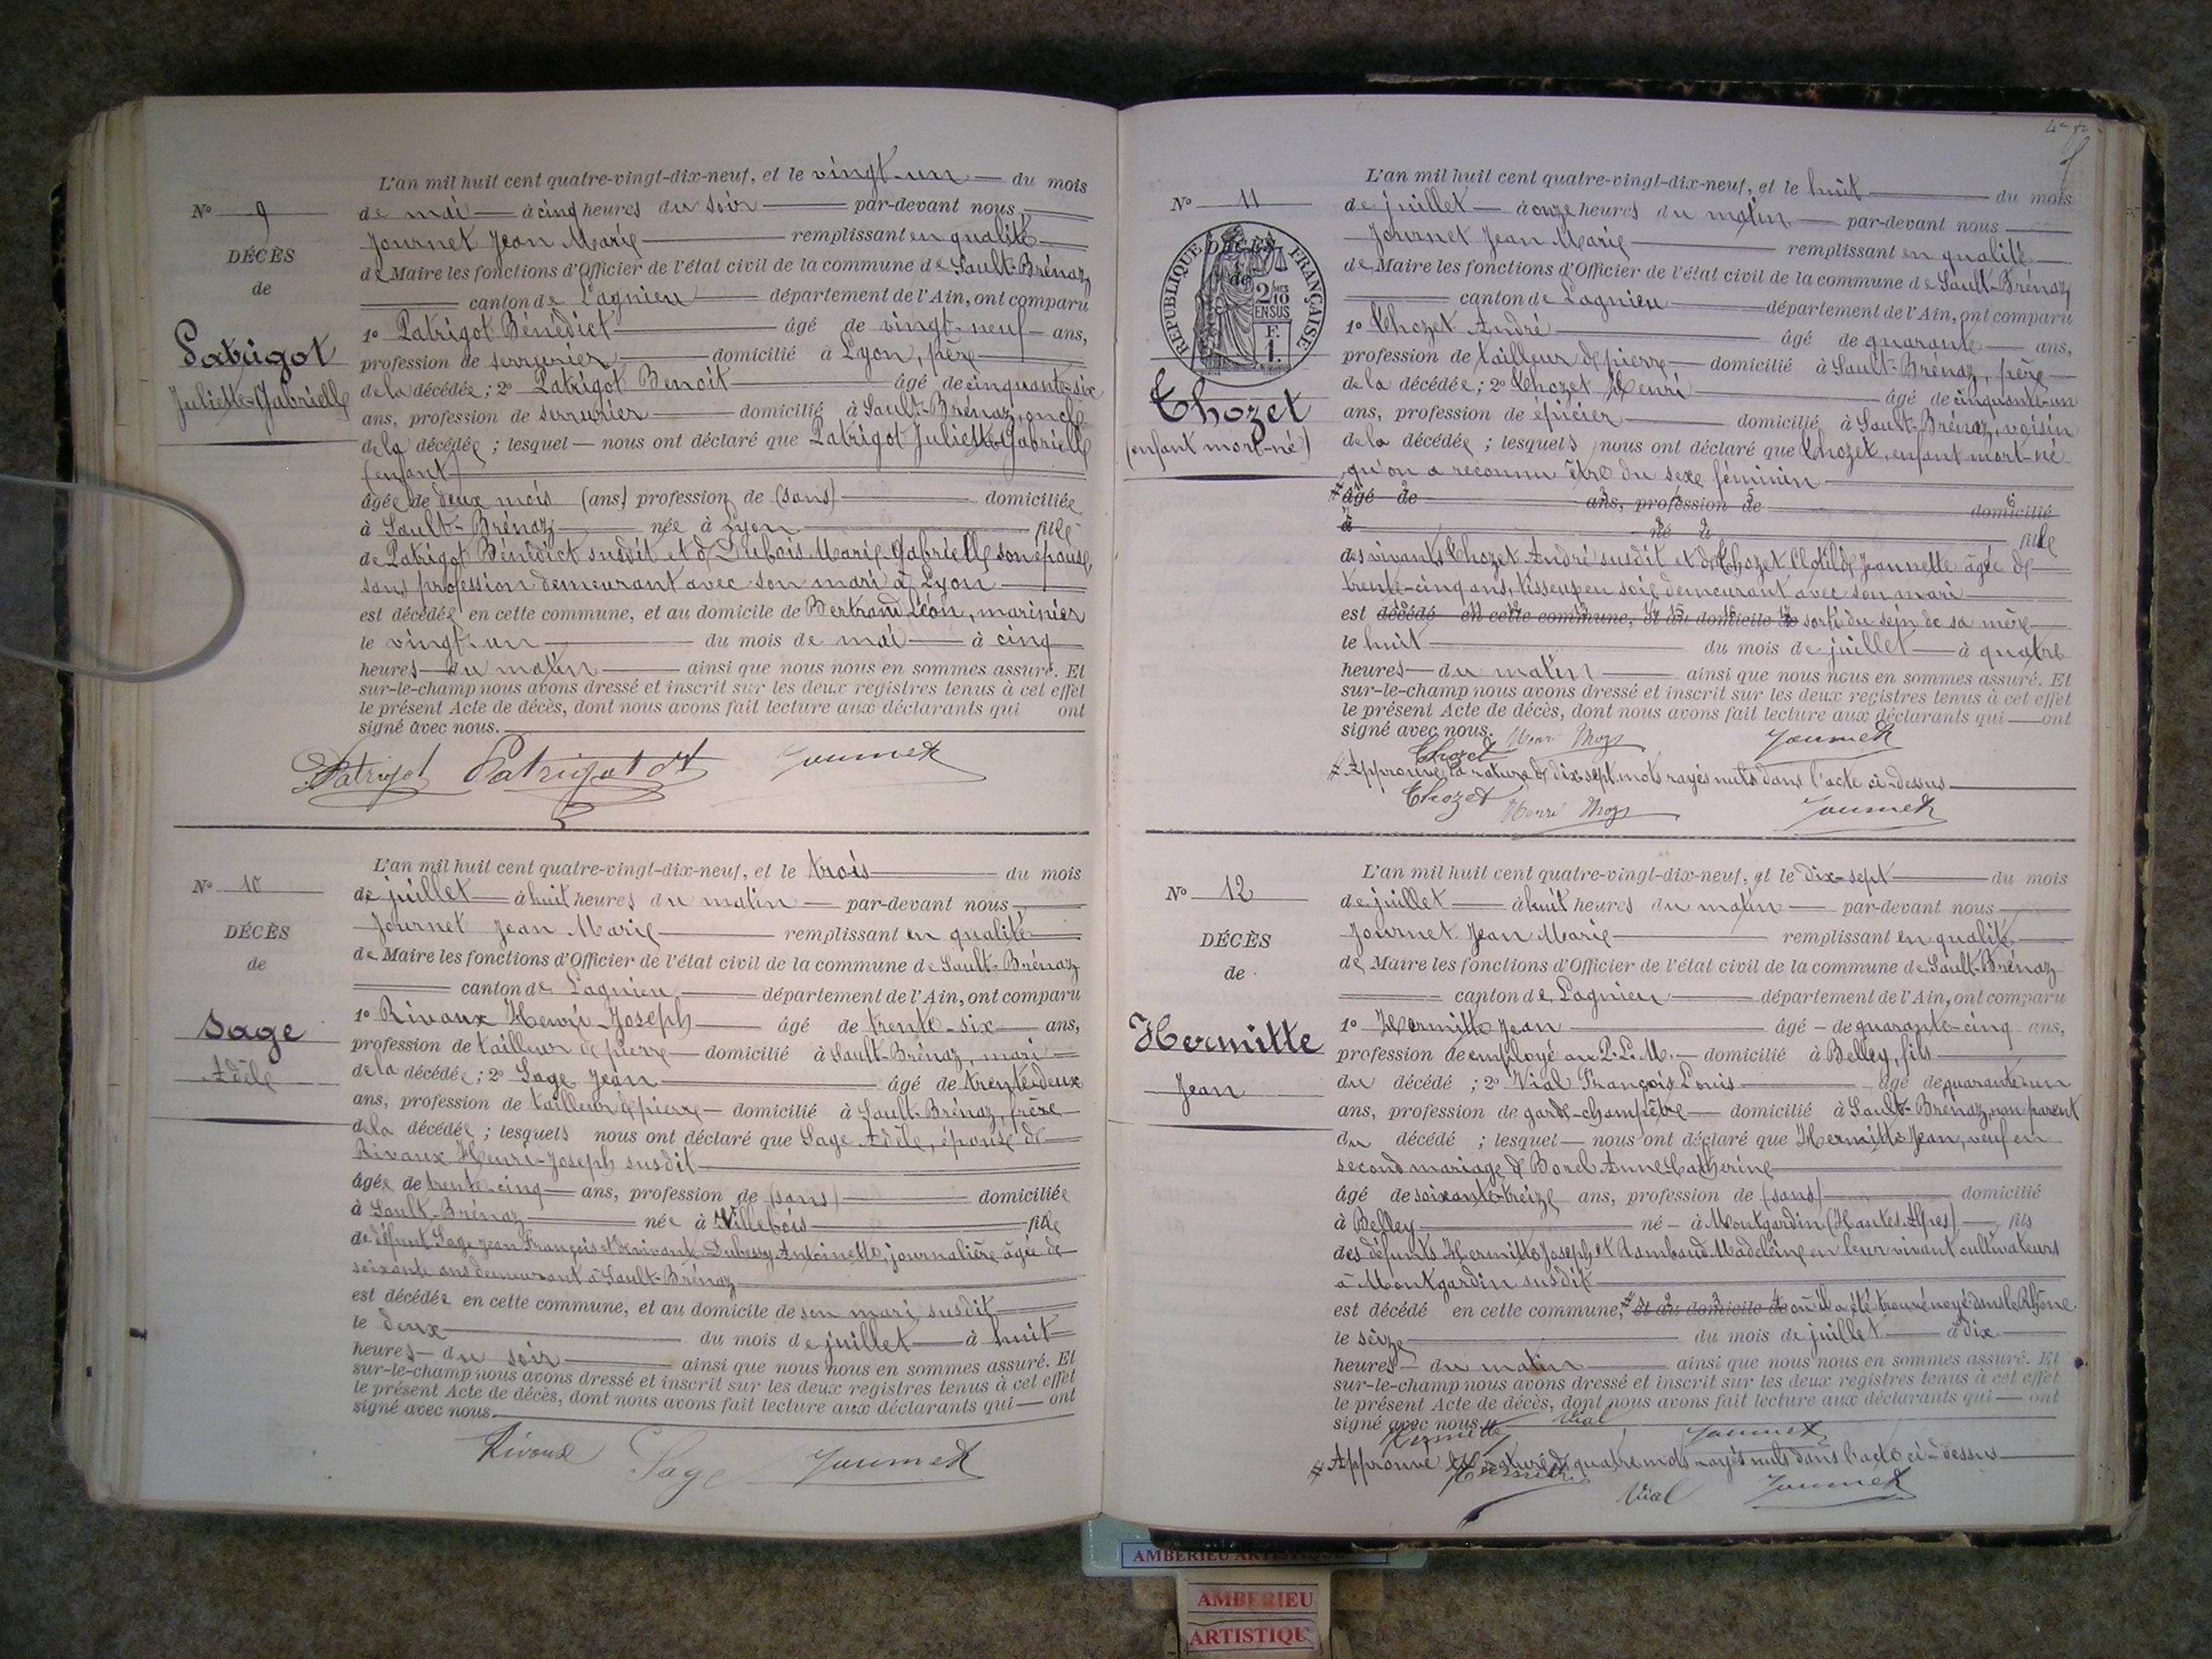 L'an mil huit cent quatre-vingt-dix-neuf, et le vingt-un du mois
de mai à cinq heures du soir par-devant nous,
Journet Jean Marie remplissant en qualité
de Maire les fonctions d'Officier de l'état civil de la commune de Sault-Brénaz
canton de Lagnieu département de l'Ain, ont comparu
1º Patrigot Bénédict âgé de vingt-neuf ans,
profession de serrurier domicilié à Lyon, père
de la décédée; 2º Patrigot Benoit âgé de cinquante-six
ans, profession de serrurier domicilié à Sault-Brénaz, oncle
de la décédée; lesquel nous ont déclaré que Patrigot Juliette-Gabrielle
(enfant)
âgée de deux mois (ans) profession de (sans) domiciliée
à Sault-Brénaz née à Lyon fille
de Patrigot Bénédict susdit et de Dubois Marie Gabrielle son épouse,
sans profession demeurant avec son mari à Lyon
est décédée en cette commune, et au domicile de Bertrand Léon, marinier
le vingt-un du mois de mai à cinq
heures du matin ainsi que nous nous en sommes assuré. Et
sur-le-champ nous avons dressé et inscrit sur les deux registres tenus à cet effet
le présent Acte de décès, dont nous avons fait lecture aux déclarants qui ont
signé avec nous.
Patrigot Patrigot Journet
Nº 9
DÉCÈS
de
Patrigot
Juliette-Gabrielle
L'an mil huit cent quatre-vingt-dix-neuf, et le trois du mois
de juillet à huit heures du matin par-devant nous
Journet Jean Marie remplissant en qualité
de Maire les fonctions d'Officier de l'état civil de la commune de Sault-Brénaz
canton de Lagnieu département de l'Ain, ont comparu
1º Rivaux Henri-Joseph âgé de trente-six ans,
profession de tailleur de pierre domicilié à Sault-Brénaz, mari
de la décédée; 2º Sage Jean âgé de trente-deux
ans, profession de tailleur de pierre domicilié à Sault-Brénaz, frère
de la décédée; lesquels nous ont déclaré que Sage Adèle, épouse de
Rivaux Henri-Joseph susdit
âgée de trente-cinq ans, profession de (sans) domiciliée
à Sault-Brénaz née à Villebois fille
de défunt Sage Jean François et de vivante Antoinette, journalière âgée de
soixante ans demeurant à Sault-Brénaz
est décédée en cette commune, et au domicile de son mari susdit
le deux du mois de juillet à huit
heures du soir ainsi que nous nous en sommes assuré. Et
sur-le-champ nous avons dressé et inscrit sur les deux registres tenus à cet effet
le présent Acte de décès, dont nous avons fait lecture aux déclarants qui ont
signé avec nous.
Rivoux Sage Journet
Nº 10
DÉCÈS
de
Sage
Adèle
L'an mil huit cent quatre-vingt-dix-neuf, et le huit du mois
de juillet à onze heures du matin par-devant nous
Journet Jean Marie remplissant en qualité
de Maire les fonctions d'Officier de l'état civil de la commune de Sault-Brénaz
canton de Lagnieu département de l'Ain, ont comparu
1º Thozet André âgé de quarante ans,
profession de tailleur de pierre domicilié à Sault-Brénaz, père
de la décédée; 2º Thozet Henri âgé de cinquante-un
ans, profession de épicier domicilié à Sault-Brénaz, voisin
de la décédée; lesquels nous ont déclaré que Thozet, enfant mort-né
qu'on a reconnu être du sexe féminin
âgé de ans, profession de domicilié
à né à fille
des vivants Thozet André susdit et de Thozet Clotilde Jeannette âgée de
trente-cinq ans, tisseuse en soie demeurant avec son mari
est décédé en cette commune, et au domicile de sorti du sein de sa mère
le huit du mois de juillet à quatre
heures du matin ainsi que nous nous en sommes assuré. Et
sur-le-champ nous avons dressé et inscrit sur les deux registres tenus à cet effet
le présent Acte de décès, dont nous avons fait lecture aux déclarants qui ont
signé avec nous.
Thozet Henri Journet
Approuvé la rature de dix-sept mots rayés nuls dans l'acte ci-dessus
Thozet Henri Journet
Nº 11
DÉCÈS
de
REPUBLIQUE FRANÇAISE
2/10
EN SUS
F.
1.
Thozet
(enfant mort-né)
L'an mil huit cent quatre-vingt-dix-neuf, et le dix-sept du mois
de juillet à huit heures du matin par-devant nous
Journet Jean Marie remplissant en qualité
de Maire les fonctions d'Officier de l'état civil de la commune de Sault-Brénaz
canton de Lagnieu département de l'Ain, ont comparu
1º Hermitte Jean âgé de quarante-cinq ans,
profession de employé au P.L.M. domicilié à Belley, fils
du décédé; 2º Vial François Louis âgé de quarante-un
ans, profession de garde-champêtre domicilié à Sault-Brénaz, non parent
du décédé; lesquel nous ont déclaré que Hermitte Jean, veuf en
second mariage de Borel Anne Catherine
âgé de soixante-treize ans, profession de (sans) domicilié
à Belley né à Montgardin (Hautes-Alpes) fils
des défunts Hermitte Joseph et Rambaud Madeleine en leur vivant cultivateurs
à Montgardin susdit
est décédé en cette commune, et au domicile de où il a été trouvé noyé dans le Rhône
le seize du mois de juillet à dix
heures du matin ainsi que nous nous en sommes assuré. Et
sur-le-champ nous avons dressé et inscrit sur les deux registres tenus à cet effet
le présent Acte de décès, dont nous avons fait lecture aux déclarants qui ont
signé avec nous.
Hermitte Vial Journet
Approuvé la rature de quatre mots rayés nuls dans l'acte ci-dessus
Hermitte Vial Journet
Nº 12
DÉCÈS
de
Hermitte
Jean
AMBERIEU ARTISTIQUE
AMBERIEU
ARTISTIQU